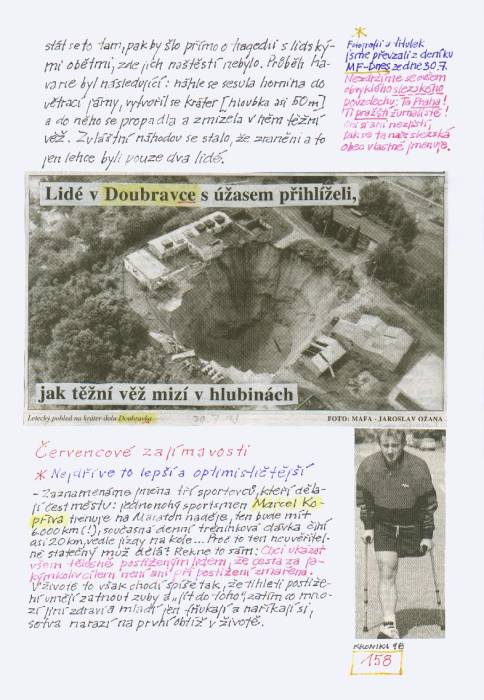 stát se to tam, pak by šlo přímo o tragedii s lidský-
mi oběťmi, zde jich naštěstí nebylo. Průběh ha-
varie byl následující: náhle se sesula hornina do
větrací jámy, vytvořil se kráter [hloubka asi 50 m]
a do něho se propadla a zmizela v něm těžní
věž. Zvláštní náhodou se stalo, že zraněni a to
jen lehce byli pouze dva lidé.
*
Fotografii a titulek
jsme převzali z deníku
MF-Dnes ze dne 30.7.
Nezdržíme se ovšem
obvyklého slezského
povzdechu: Ta Praha!
Ti pražští žurnalisté!
Oni si ani nezjistí,
jak se ta naše slezská
obec vlastně jmenuje.
Lidé v Doubravce s úžasem přihlíželi,
jak těžní věž mizí v hlubinách
Letecký pohled na kráter dolu Doubravka
FOTO: MAFA - JAROSLAV OŽANA
Červencové zajímavosti
* Nejdříve to lepší a optimističtější
- Zaznamenáme jména tří sportovců, kteří děla-
jí čest městu: jednonohý sportsmen Marcel Ko-
přiva trénuje na Maratón naděje, ten bude mít
6.000 km (!), současná denní tréninková dávka činí
asi 20 km, vedle jízdy na kole... Proč to ten neuvěřitel-
ně statečný muž dělá? Řekne to sám: Chci ukázat
všem tělesně postiženým lidem, že cesta za ja-
kýmkoliv cílem není ani při postižení zmařena.
V životě to však chodí spíše tak, že tihle ti postiže-
ní umějí zatnout zuby a "jít do toho", zatím co mno-
zí jiní zdraví a mladí jen fňukají a naříkají si,
sotva narazí na první obtíž v životě.
KRONIKA 98
158